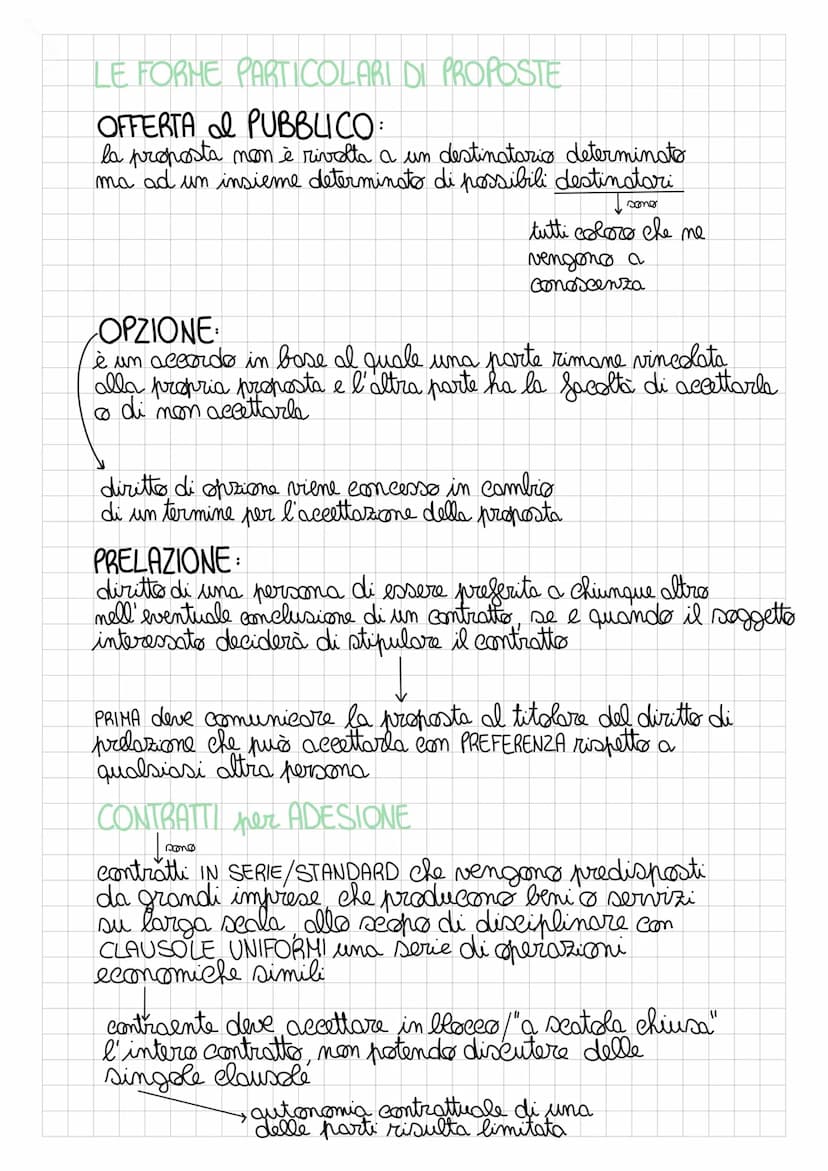 LE FORME PARTICOLARI DI PROPOSTE
OFFERTA al PUBBLICO:
la proposta non è rivolta a un destinatario determinato
ma ad un insieme determinato di possibili destinatari
sono
tutti coloro che ne
vengono a
conoscenza
OPZIONE:
è un accordo in base al quale una parte rimane vincolata
alla propria proposta e l'altra parte ha la facoltà di accettarla
o di non accettarla
diritto di opzione viene concesso in cambio
di un termine per l'accettazione della proposta
PRELAZIONE:
diritto di una persona di essere preferita a chiunque altro
nell'eventuale conclusione di un contratto, se e quando il soggetto
interessato deciderà di stipulare il contratto
PRIMA deve comunicare la proposta al titolare del diritto di
prelazione che può accettarla con PREFERENZA rispetto a
qualsiasi altra persona
CONTRATTI per ADESIONE
sono
contratti IN SERIE/STANDARD che vengono predisposti
da grandi imprese, che producono beni o servizi
su larga scala, allo scopo di disciplinare con
CLAUSOLE UNIFORMI una serie di operazioni
economiche simili
contraente deve accettare in blocco/"a scatola chiusa"
l'intero contratto, non potendo discutere delle
singole clausole
autonomia contrattuale di una
delle parti risulta limitata